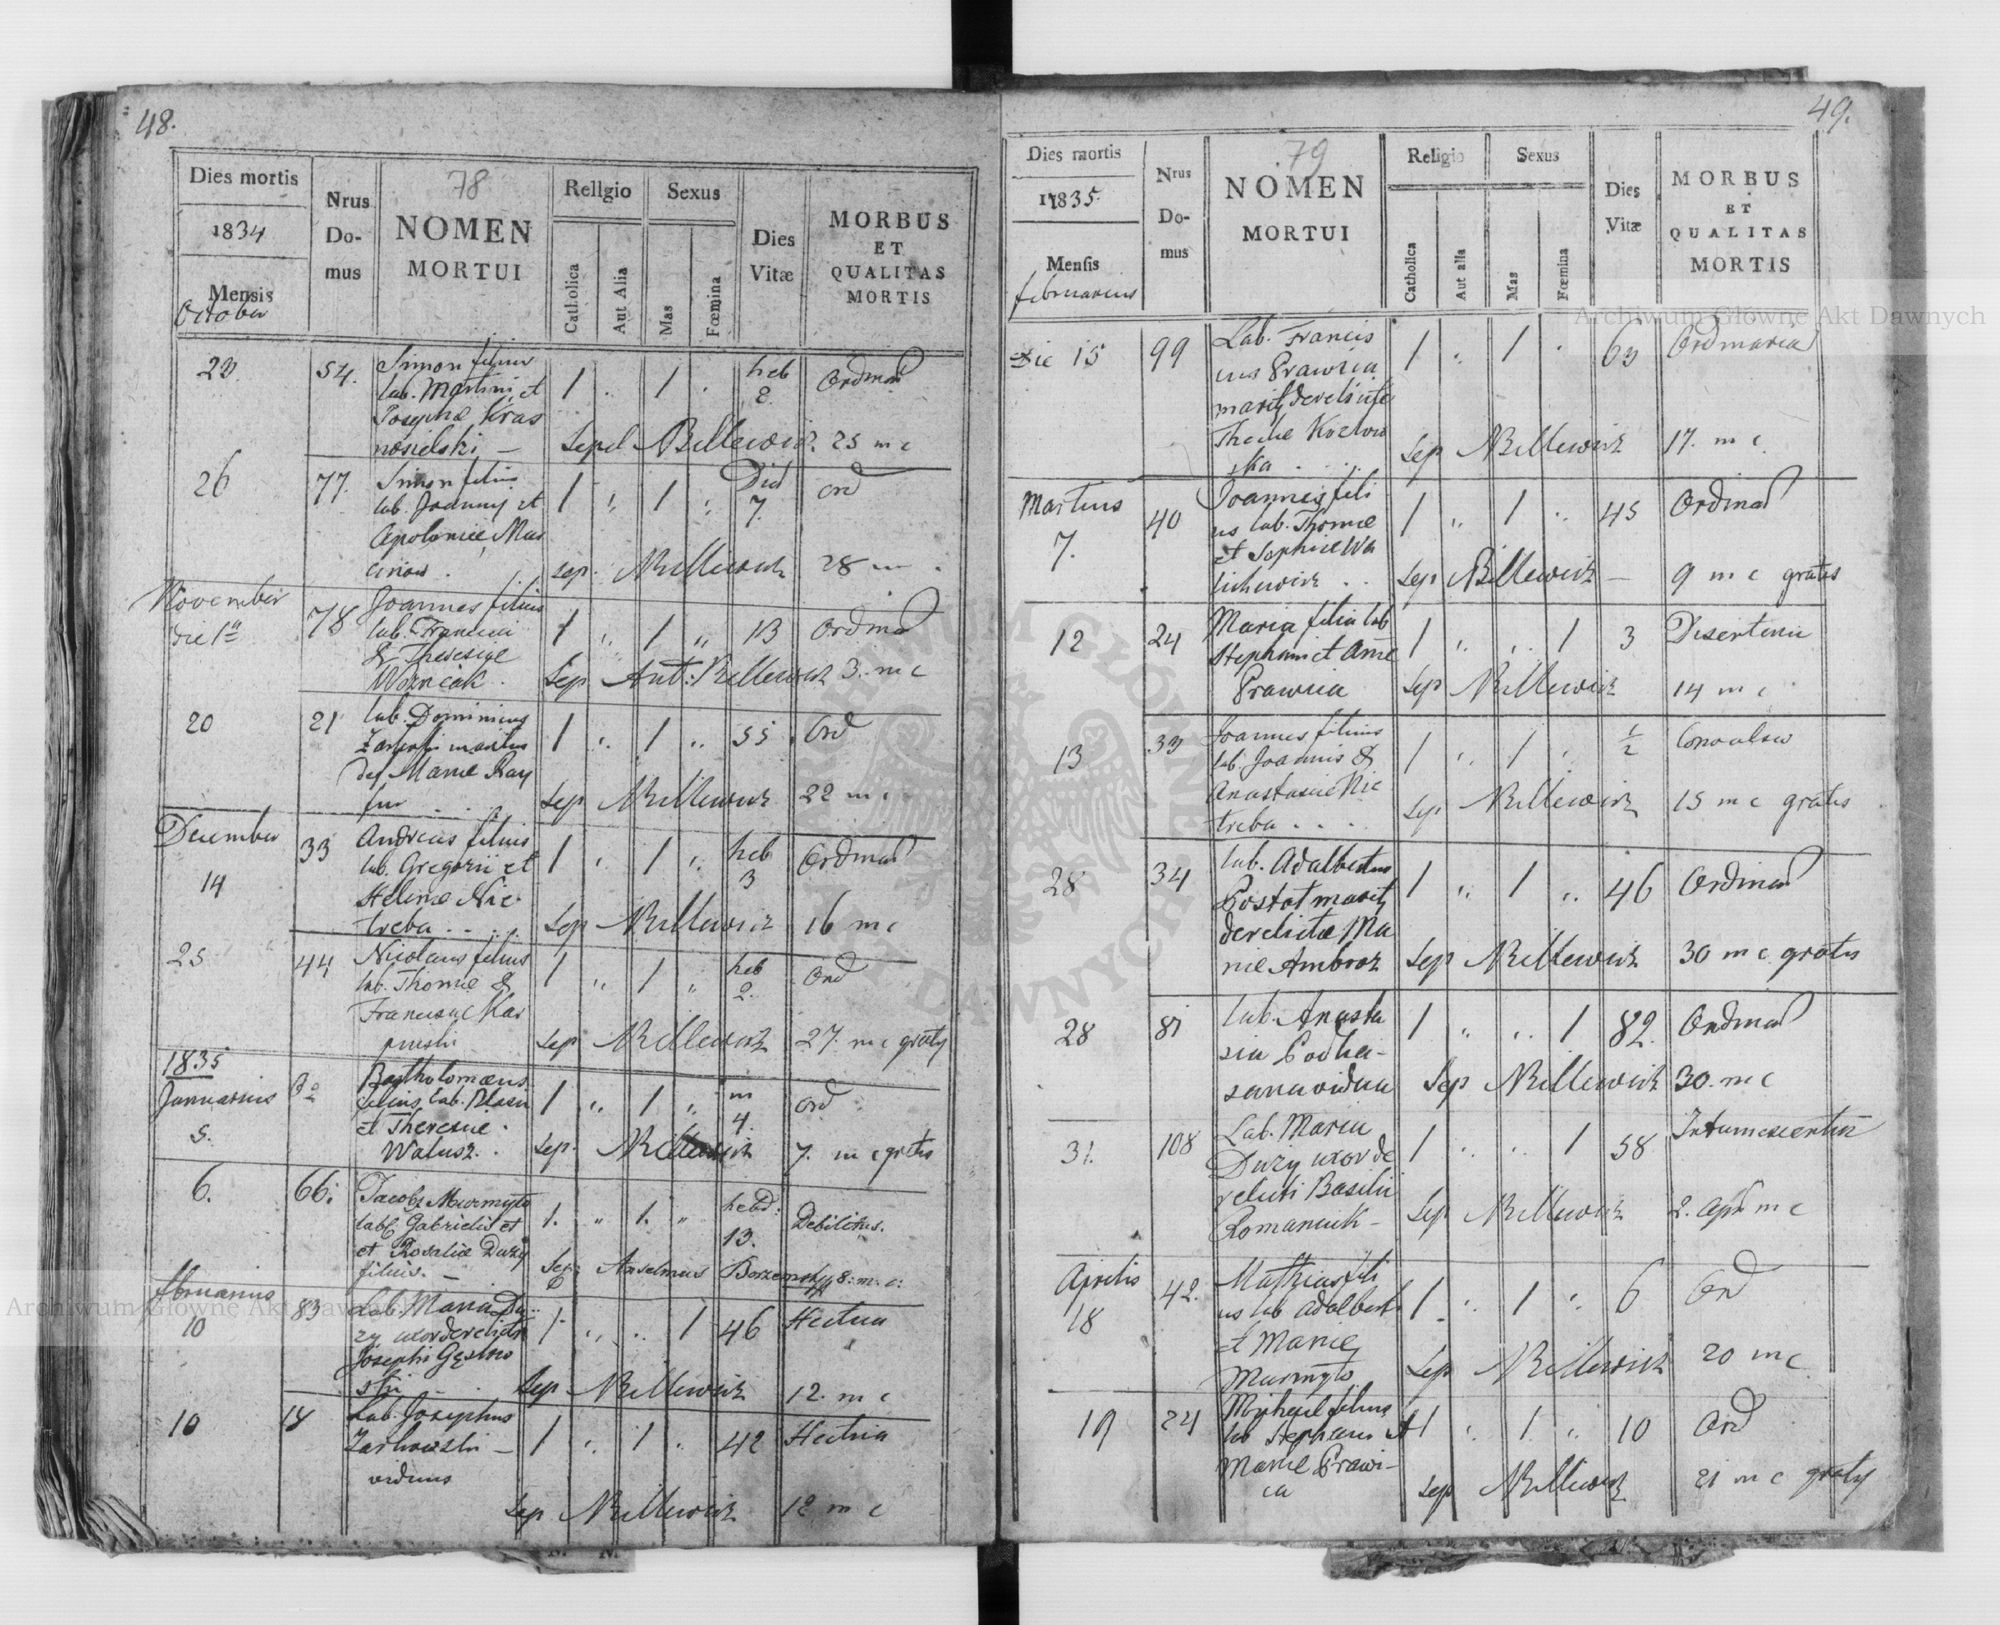 48.
Dies mortis
1834
Mensis
October
Nrus
Do-
mus
78
NOMEN
MORTUI
Religio
Catholica
Aut Alia
Sexus
Mas
Fœmina
Dies
Vitæ
MORBUS
ET
QUALITAS
MORTIS
54. Simon filius 1 1 heb Ordinar
lab. Martini et 2.
Josephæ Kras
nosielski — Sepel Billewicz. 25 m c
26 77. Simon filius 1 1 Died Ord
lab. Joannis et 7.
Apoloniæ Mar
Sep. Billewicz 28 m
November 78 Joannes filius 1 1 13 Ordinar
die 1a lab. Francisci
& Theresiae
Wozniak. Sep Ant: Billewicz 3. m c
20 21 lab. Dominicus 1 1 55 Ord
maritus
Mariæ
Sep Billewicz 22 m c
December 33 Andreas filius 1 1 heb Ordinar
14 lab. Gregorii et 3
Helenæ Nie
treba . . . . Sep Billewicz 16 m c
25 44 Nicolaus filius 1 1 heb Ord
lab. Thomæ & 2.
Franciscæ Kar
pinski Sep Billewicz 27. m c gratis
1835
Januarius Bartholomæus 1 1 m Ord
5. filius lab. Blasii 4.
et Theresiæ
Walusz. . Sep. Billewicz 7. m c gratis
6. 66. Jacobg Murmyło 1. 1. hebd: Debilitas.
lab. Gabrielis et 13.
et Rosaliæ Duży
filius. — Sep: Anselmus Borzemski 8: m. c:
februarius 83 Lab. Maria Du- 1 1 46 Hectica
10 ży uxor derelicta
Josephi Gąsiow
ski Sep Billewicz 12. m c
10 18 Lab. Josephus 1 1 42 Hectica
Zarkowski —
viduus
Sep Billewicz 12 m c
49.
Dies mortis
1835.
Mensis
februarius
Nrus
Do-
mus
79
NOMEN
MORTUI
Religio
Catholica
Aut alia
Sexus
Mas
Fœmina
Dies
Vitæ
MORBUS
ET
QUALITAS
MORTIS
Die 15 99 Lab. Francis 1 1 63 Ordinaria
cus Prawica
marit derelictæ
Theclæ Kozłow
ska . . . Sep Billewicz 17. m c
Martius 40 Joannes fili 1 1 45 Ordinar
7. us lab. Thomæ
et Sophiæ Wa
Sep Billewicz — 9 m c gratis
12 24 Maria filia lab 1 1 3 Disenteria
Stephani et Annæ
Prawica Sep Billewicz 14 m c
13 33 Joannes filius 1 1 1/2 Convulsio
lab. Joannis &
Anastasiæ Nie
treba . . . Sep Billewicz 15 m c gratis
28 34 lab. Adalbertus 1 1 46 Ordinar
Postot marit
derelictæ Ma
riæ Ambroz Sep Billewicz 30 m c gratis
28 81 lab. Anasta 1 1 82. Ordinar
sia
vidua Sep Billewicz 30. m c
31. 108 Lab. Maria 1 1 58 Intumescentia
Duży uxor de
relicti Basilii
Romaniuk — Sep Billewicz 2. Apr m c
Aprilis 42. Mathias fili 1 1 6 Ord
18 us lab Adalberti
et Mariæ
Murmyło Sep Billewicz 20 m c
19 24 Michael filius 1 1 10 Ord
lab Stephani et
Mariæ Prawi-
ca Sep Billewicz 21 m c gratis
Archiwum Główne Akt Dawnych
Archiwum Główne Akt Dawnych
ARCHIWUM GŁÓWNE AKT DAWNYCH